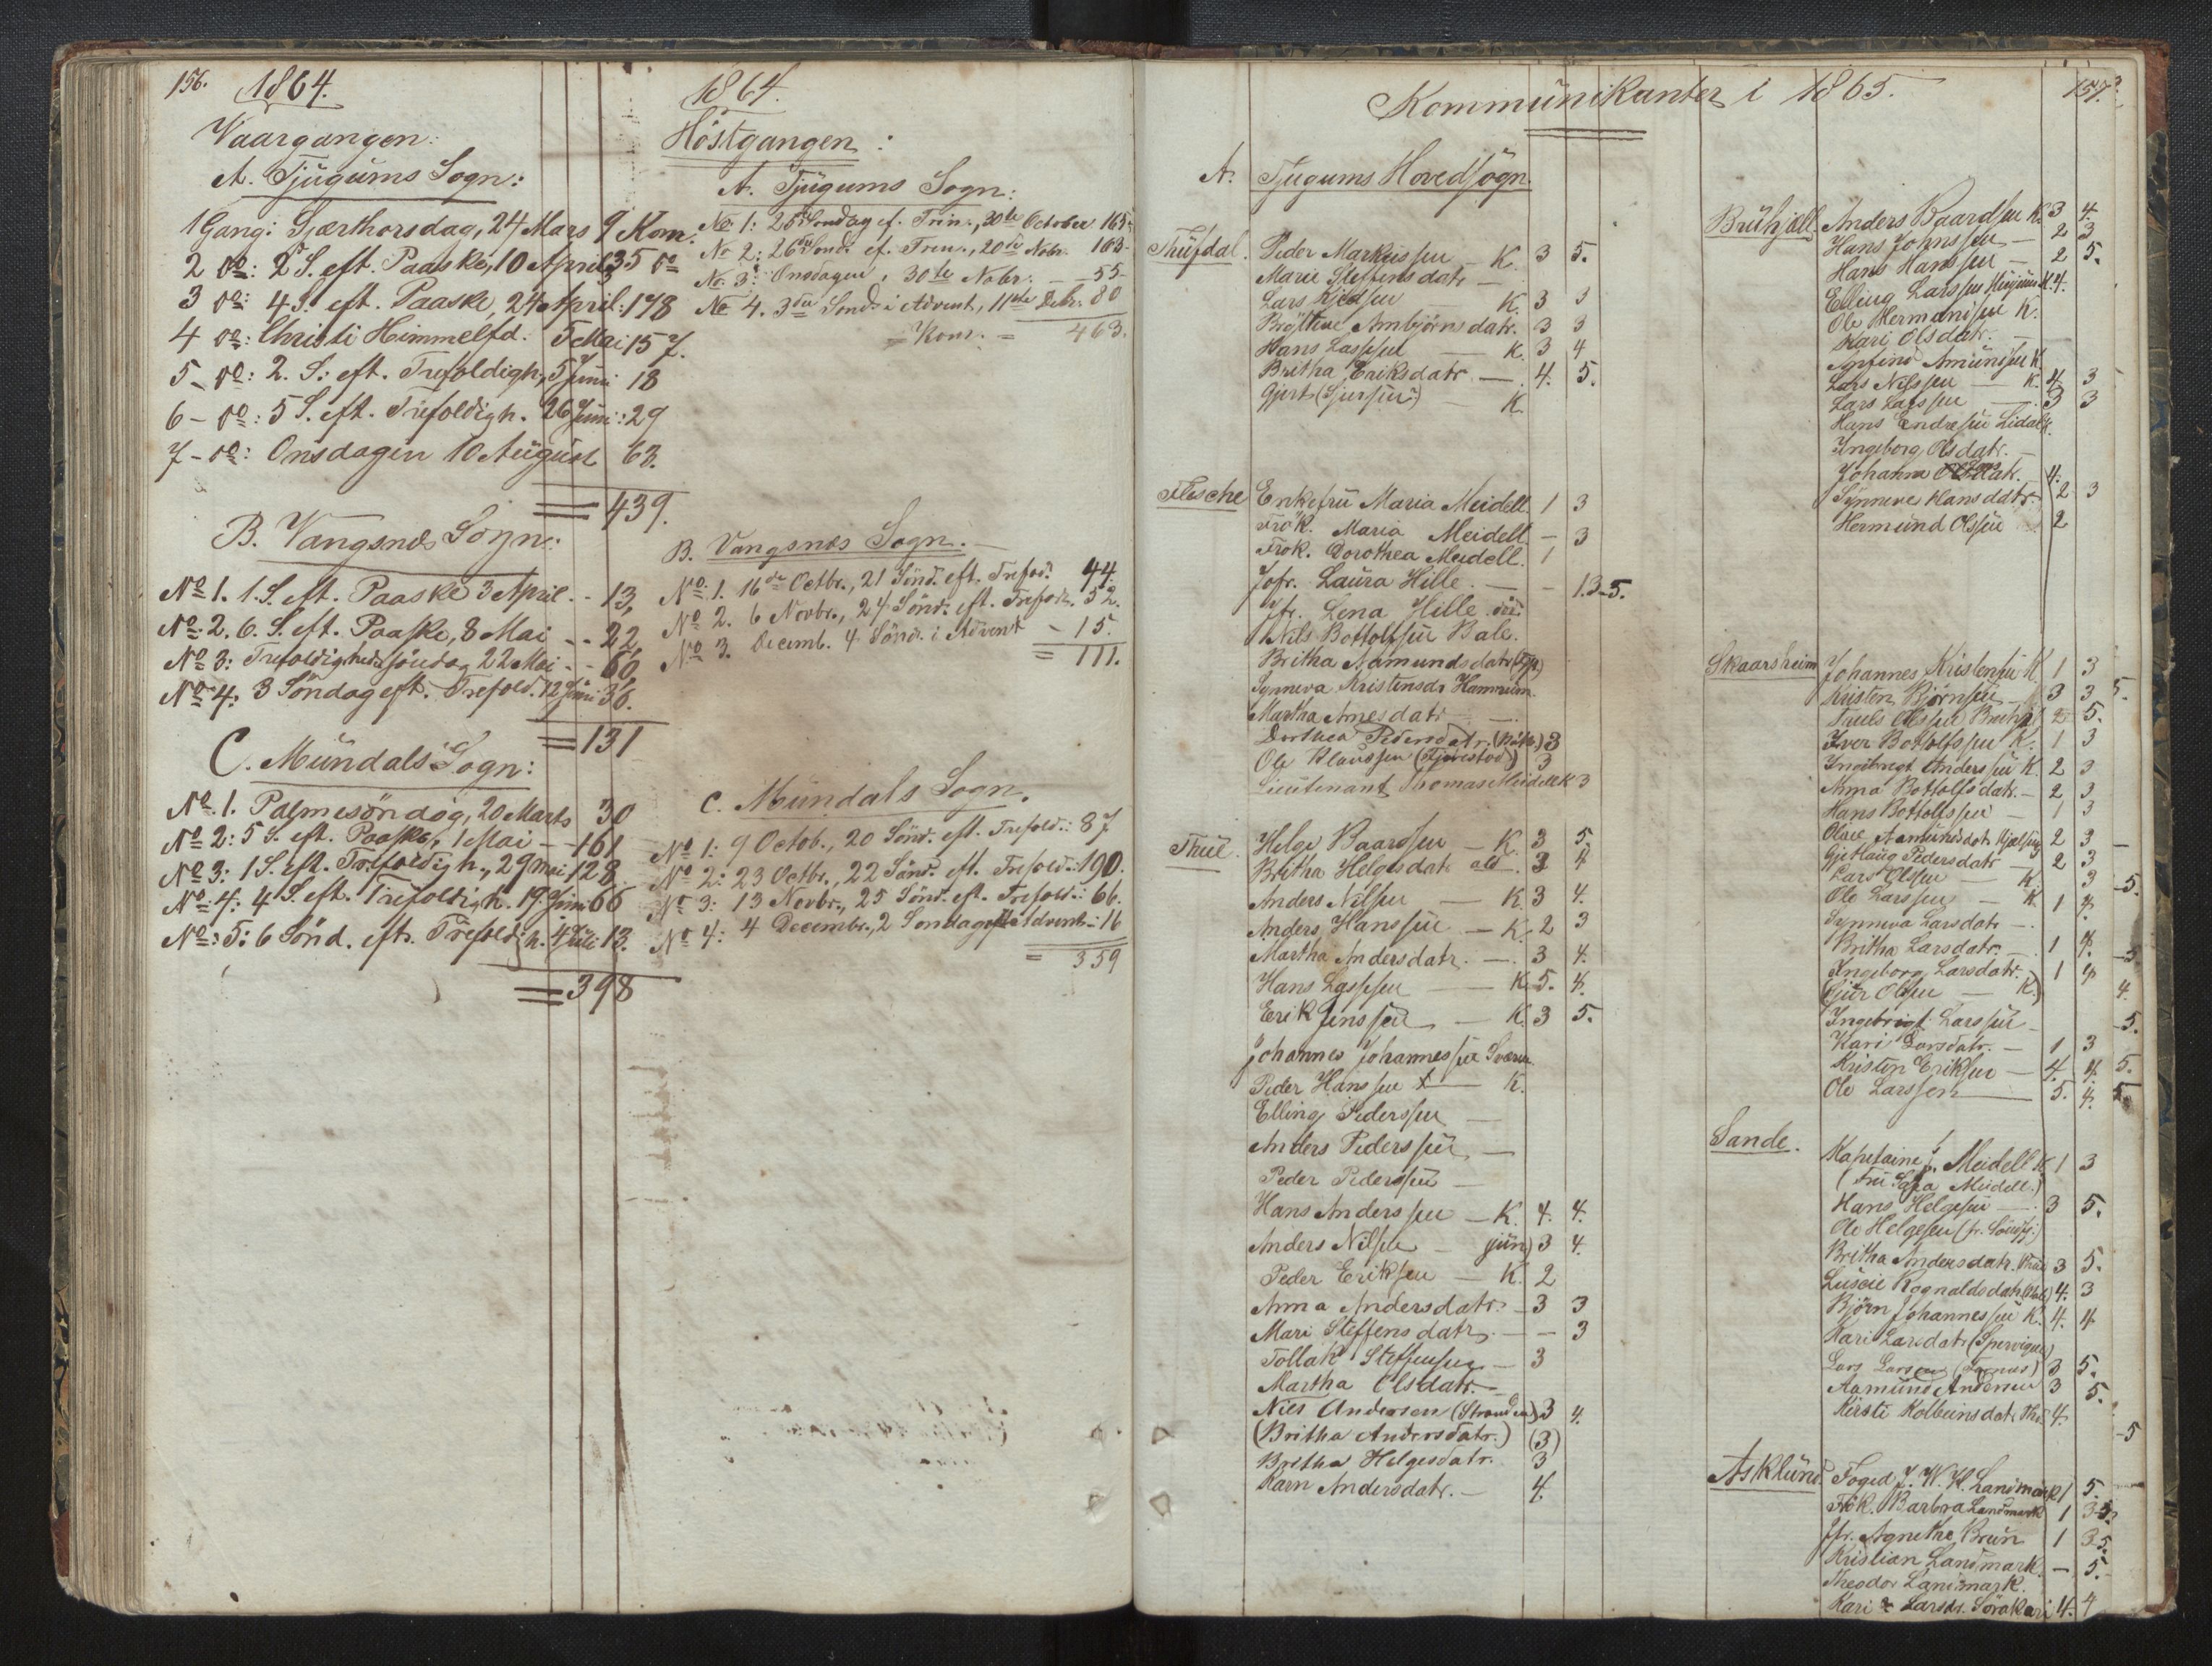 156.
1864.
Vaargangen:
A. Tjugums Sogn:
1 Gang: Sjærthorsdag, 24 Mars 9 Kom.
2 do: 2 S. eft. Paaske, 10 April 35 do
3 do: 4 S. eft. Paaske, 24 April: 178
4 do: Christi Himmelfd: 5 Mai 157.
5 - do: 2. S. eft. Trefoldigh, 5 Juni 18
6 - do: 5 S. eft. Trefoldigh. 26 Juni: 29
7 - do: Onsdagen 10 August 63.
= 439.
B. Vangsnæs Sogn:
No 1. 1. S. eft. Paaske 3 April - 13,
No. 2. 6. S. eft. Paaske, 8 Mai - - 22,
No 3: Trefoldighedssöndag 22 Mai - 60,
No 4: 3 Söndag eft. Trefold. 12 Juni 36.
= 131
C. Mundals Sogn:
No. 1. Palmesöndag, 20 Marts 30
No 2: 5 S. eft. Paaske, 1 Mai - 161
No 3: 1 S. eft. Trefoldigh., 29 Mai 128
No 4: 4 S. eft. Trefoldigh. 19. Juni 66
No: 5: 6 Sönd. eft. Trefoldigh. 4 Juli 13.
= 398
1864.
Höstgangen:
A. Tjugums Sogn:
No 1: Sondag ef. Trin., October
No 2: 26de Sond. ef. Tren., 20de Nobr. 163-
No. 3: Onsdagen, 30te Nobr. - 55-
No 4. 3die Sond. i Advent, 11te Debr. 80
= Kom. = 463.
B. Vangsnæs Sogn.
No 1. 16de Octbr., 21 Sönd. eft. Trefod. 44.
No 2. 6 Novbr., 24 Sönd. eft. Trefod. 52.
No 3. Decemb. 4 Sönd. i Advent - 15.
= 111.
C. Mundals Sogn.
No 1: 9 Octob., 20 Sönd. eft. Trefold: 87
No 2: 23 Octbr., 22 Sönd. eft. Trefold: 190.
No 3: 13 Novbr., 25 Sönd. eft. Trefold: 66.
No 4: 4 Decembr., 2 Sondag Advent: 16
= 359
Kommunikanter i 1865.
157.
A. Tjugums Hovedsogn.
Thufdal. Peder Markussen - K. 3 5.
Marie Steffensdatr -
Lars K. 3 3
Ambjörnsdatr. 3 3
Hans Lassesen - K. 3 4
Britha Eriksdatr - 4. 5.
Gjert - K.
Flesche Enkefru Maria Meidell 1 3
Frök. Maria Meidell - 3
Frok. Dorothea Meidell. 1
Jofr. Laura Hille. - - 1.3-5.
Jfr. Lena Hille
Nils Bottolfsen Bale.
Britha Aamundsdatr
Synneva Kristensdr
Martha Arnesdatr -
Dorthea Pedersdatr. 3
Ole Klaussen 3
Lieutenant Thomas Meidell K 3
Thue. Helge Baardsen - K. 3 5.
Britha Helgesdatr 3 4
Anders Nilsen - K. 3 4.
Anders Hanssen - K. 2 3
Martha Andersdatr. - 3 4.
Hans Lassesen - K. 5. 4.
Erik Jenssen - K. 3 5.
Johannes Johannessen
Peder Hanssen - K.
Elling Pederssen -
Anders Pederssen -
Peder Pederssen -
Hans Anderssen - K. 4. 4.
Anders Nilsen - jün) 3 4.
Peder Eriksen - K. 2
Anna Andersdatr - 3 3
Mari Steffensdatr - - 3
Tollak Steffensen - 3
Martha Olsdatr. -
Nils Andersen (Stranden) 3 4.
(Britha Andersdatr.) (3)
Britha Helgesdatr. 3
Karn Andersdatr. - 4.
Anders Baardsen K. 3 4.
Hans Johnssen - 2 3
Hans Hanssen - 2 5.
Elling Larssen K. 4.
Ole Hermansen K.
Kari Olsdatr. -
K.
Lars Nilssen - K. 4 3
Lars Larssen - 3 3
Hans Endresen
Ingeborg Olsdatr. -
Johanna 4.
Synneve Hansdatr. 2 3
Hermund Olssen 2
Skaarsheim Johannes Kristensen K. 1 3
Kristen Björnsen - 3 3 5.
Truels Olssen 2 5.
Iver Bottolfssen K. 1 3
Ingebregt Anderssen K. 2 3
Anna Bottolfsdatr. - 2 3
Hans Bottolfssen - 1 3
Aamundsdatr. 2 3 -
Gjertlaug Pedersdatr - 2 3
Lars Olsen - K. 3 -5.
Ole Larssen - K. 1 4.
Synneva Larsdatr -
Britha Larsdatr. - 1 4. -5
Ingeborg Larsdatr. - 1 4
Olsen - K. 4.
Ingebrigt Larssen - -5.
Kari Larsdatr. - 1 3
Kristen Eriksen - 4. 4. 5.
Ole Larssen - 5. 4. 5
Sande. Kapitaine Meidell K. 1 3
(Fru Meidell.)
Hans Helgesen - 3 5.
Ole Helgesen
Britha Andersdatr. 3 5.
Rognaldsdatr 4. 3
Björn Johannessen K. 4. 4
Kari Larsdatr
Lars Larsen 3 5.
Aamund Andersen 3 5.
Kirsti Kolbeinsdatr 4. -5
Asklund Foged J. W. K. Landmark 1 5.
Frk. Barbra Landmark 1 3-5.
Jfr. Agnethe Brun 1 35.
Kristian Landmark. - 5.
Theodor Landmark.
Kari Larsdr. 4. 4